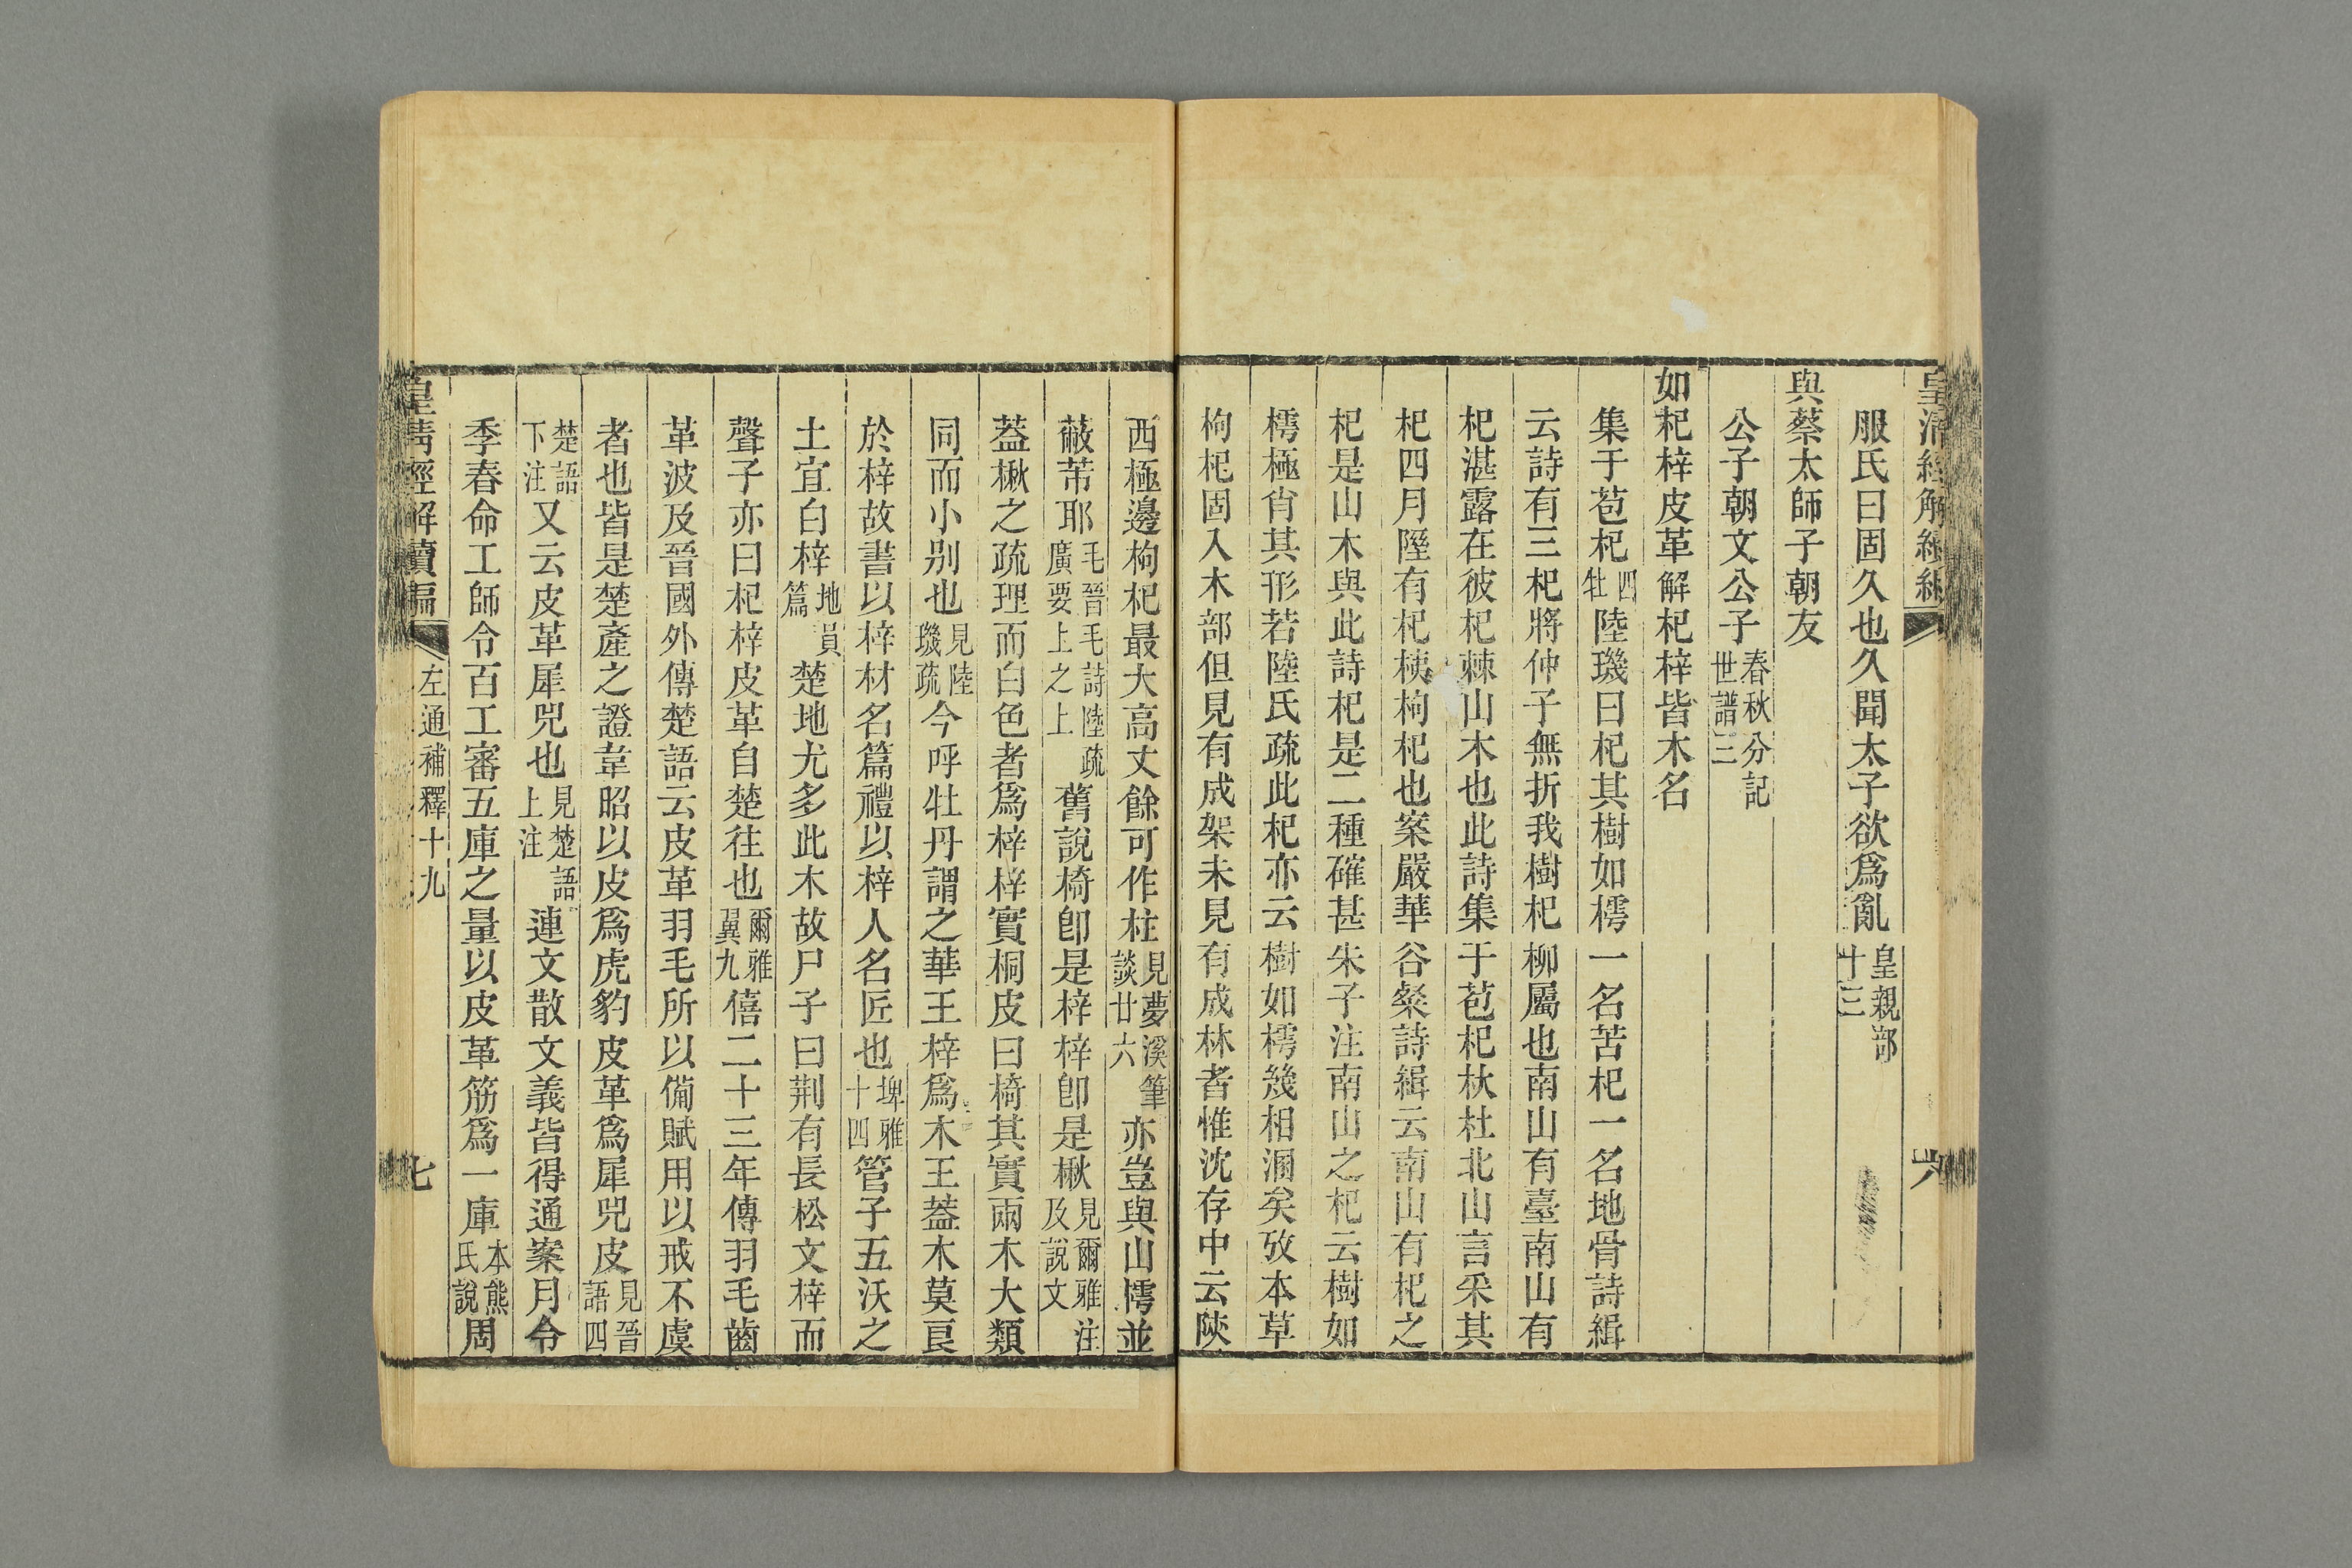 皇清經解續編
六
服氏曰固久也久聞太子欲爲亂皇親部十三
與蔡太師子朝友
公子朝文公子春秋分記世譜三
如杞梓皮革解杞梓皆木名
集于苞杞四牡陸璣曰杞其樹如樗一名苦杞一名地骨詩緝
云詩有三杞將仲子無折我樹杞柳屬也南山有臺南山有
杞湛露在彼杞棘山木也此詩集于苞杞杕杜北山言采其
杞四月隰有杞桋枸杞也案嚴華谷粲詩緝云南山有杞之
杞是山木與此詩杞是二種確甚朱子注南山之杞云樹如
樗極肖其形若陸氏疏此杞亦云樹如樗幾相溷矣攷本草
枸杞固入木部但見有成架未見有成林者惟沈存中云陝
西極邊枸杞最大高丈餘可作柱見夢溪筆談廿六亦豈與山樗並
蔽芾耶毛晉毛詩陸疏廣要上之上舊說椅卽是梓梓卽是楸見爾雅注及說文
蓋楸之疏理而白色者爲梓梓實桐皮曰椅其實兩木大類
同而小别也見陸璣疏今呼牡丹謂之華王梓爲木王蓋木莫良
於梓故書以梓材名篇禮以梓人名匠也埤雅十四管子五沃之
土宜白梓地員篇楚地尤多此木故尸子曰荆有長松文梓而
聲子亦曰杞梓皮革自楚往也爾雅翼九僖二十三年傳羽毛齒
革波及晉國外傳楚語云皮革羽毛所以備賦用以戒不虞
者也皆是楚產之證韋昭以皮爲虎豹皮革爲犀兕皮見晉語四
楚語下注又云皮革犀兕也見楚語上注連文散文義皆得通案月令
季春命工師令百工審五庫之量以皮革筋爲一庫本熊氏說周
皇清經解續編
左通補釋十九
七